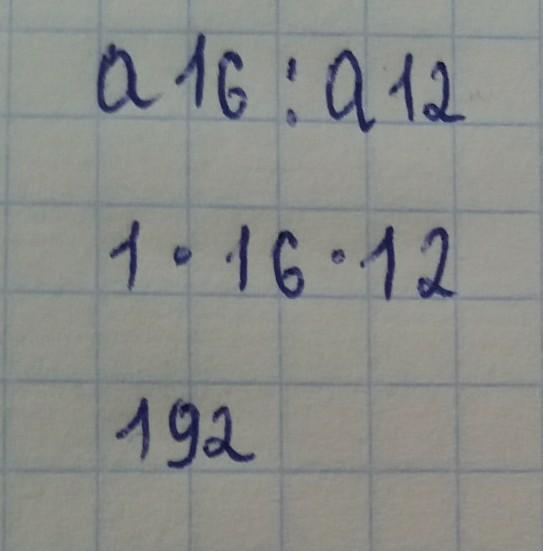 a16:a12
1·16·12
192